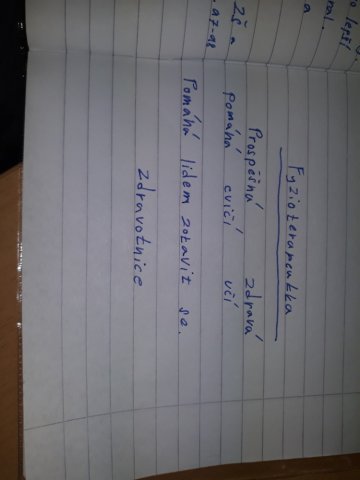 lepší
a
ZŠ a
97-98
Fyzioterapeutka
Prospěšná zdravá
pomáhá cvičí učí
Pomáhá lidem zotavit se.
Zdravotnice